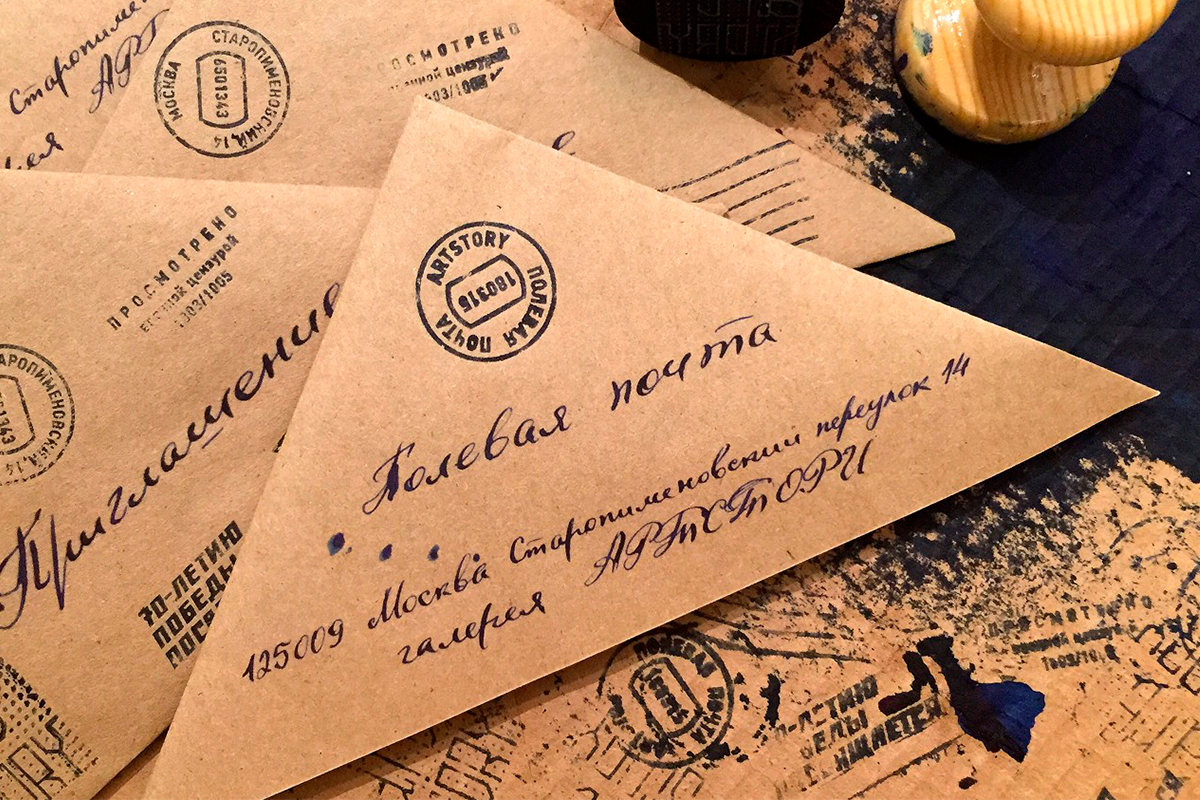 Старопимен
АРТ
МОСКВА СТАРОПИМЕНОВСКИЙ, 14
6501343
ПРОСМОТРЕНО
военной цензурой
1903/1905
ПРОСМОТРЕНО
военной цензурой
1903/1905
СТАРОПИМЕНОВСКИЙ, 14
Приглашение
70-ЛЕТИЮ
ПОБЕДЫ
ПОСВ
ARTSTORY ПОЛЕВАЯ ПОЧТА
180915
Полевая почта
125009 Москва Старопименовский переулок 14
галерея АРТСТОРИ
ПРОСМОТРЕНО
ПОЛЕВАЯ ПОЧТА
-ЛЕТИЮ
ЕДЫ
ЩАЕТСЯ